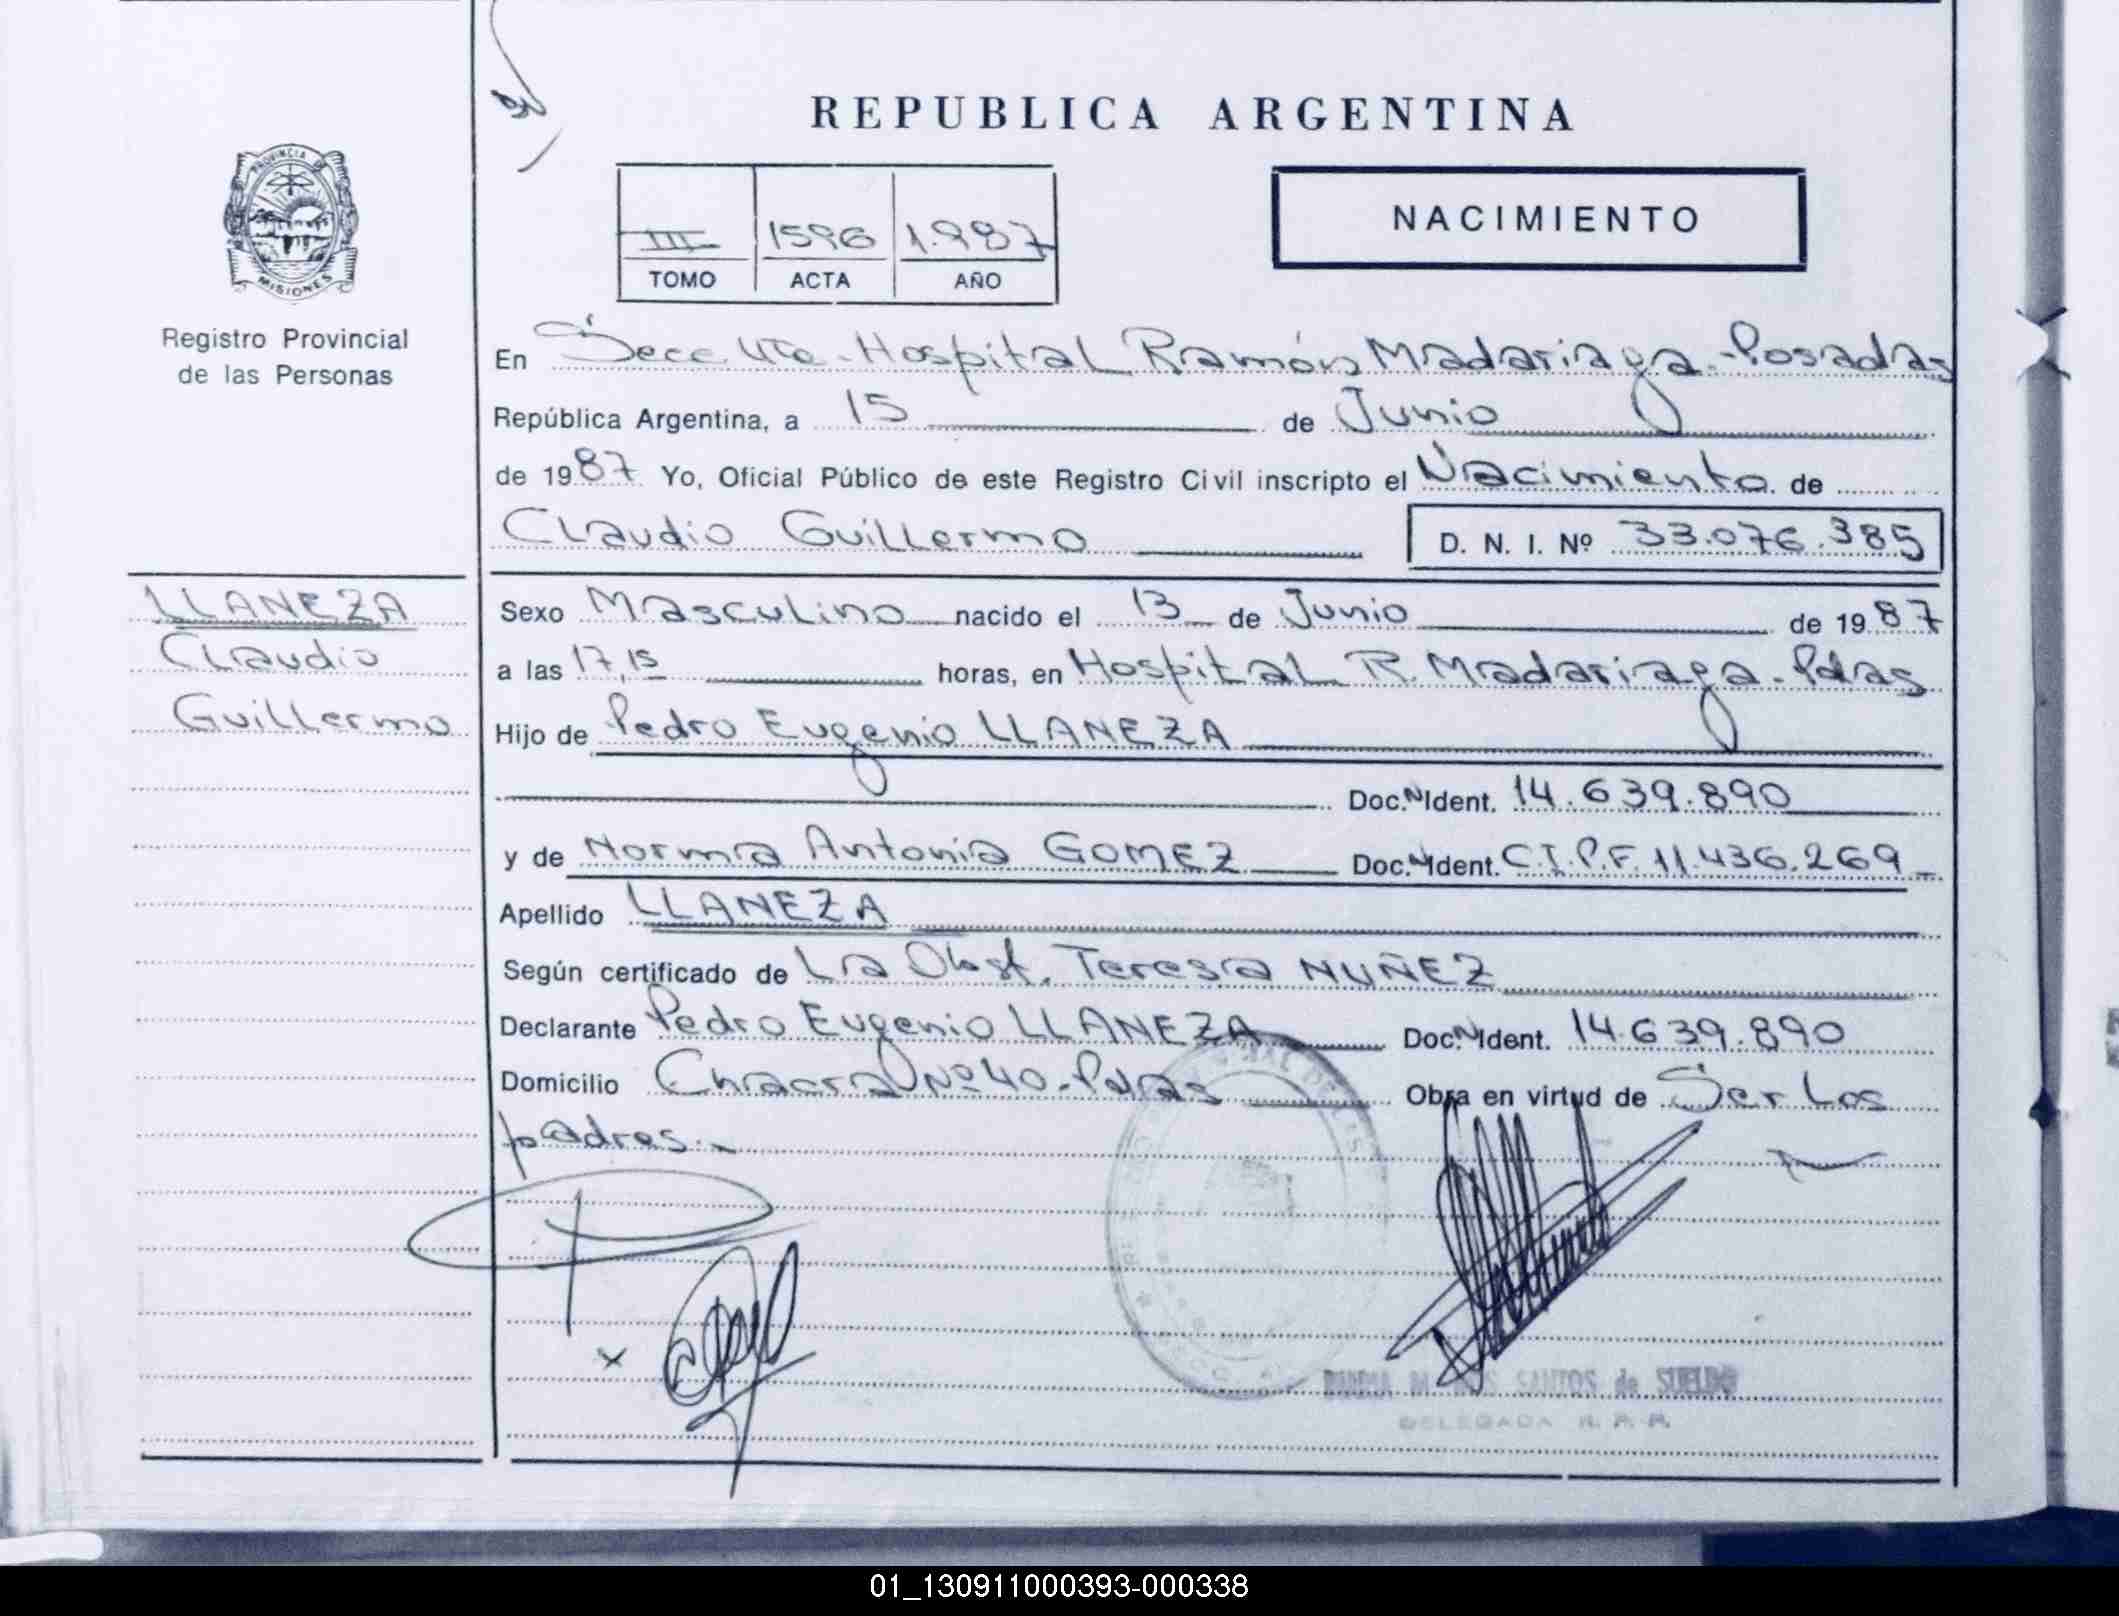 REPUBLICA ARGENTINA
PROVINCIA DE
MISIONES
Registro Provincial
de las Personas
III 1596 1.987
TOMO ACTA AÑO
NACIMIENTO
En Secc. 4ta - Hospital Ramón Madariaga - Posadas
República Argentina, a 15 de Junio
de 1987 Yo, Oficial Público de este Registro Civil inscripto el Nacimiento de
Claudio Guillermo D. N. I. Nº 33.076.385
LLANEZA
Claudio
Guillermo
Sexo Masculino nacido el 13 de Junio de 1987
a las 17,15 horas, en Hospital R. Madariaga - Pdas
Hijo de Pedro Eugenio LLANEZA
Doc. N Ident. 14.639.890
y de Norma Antonia GOMEZ Doc. N Ident. C.I.P.F. 11.436.269
Apellido LLANEZA
Según certificado de La Obst. Teresa NUÑEZ
Declarante Pedro Eugenio LLANEZA Doc. N Ident. 14.639.890
Domicilio Chacra Nº 40 - Pdas Obra en virtud de Ser los
padres.-
x
SANTOS de SUELDO
DELEGADA R. P. P.
01_130911000393-000338